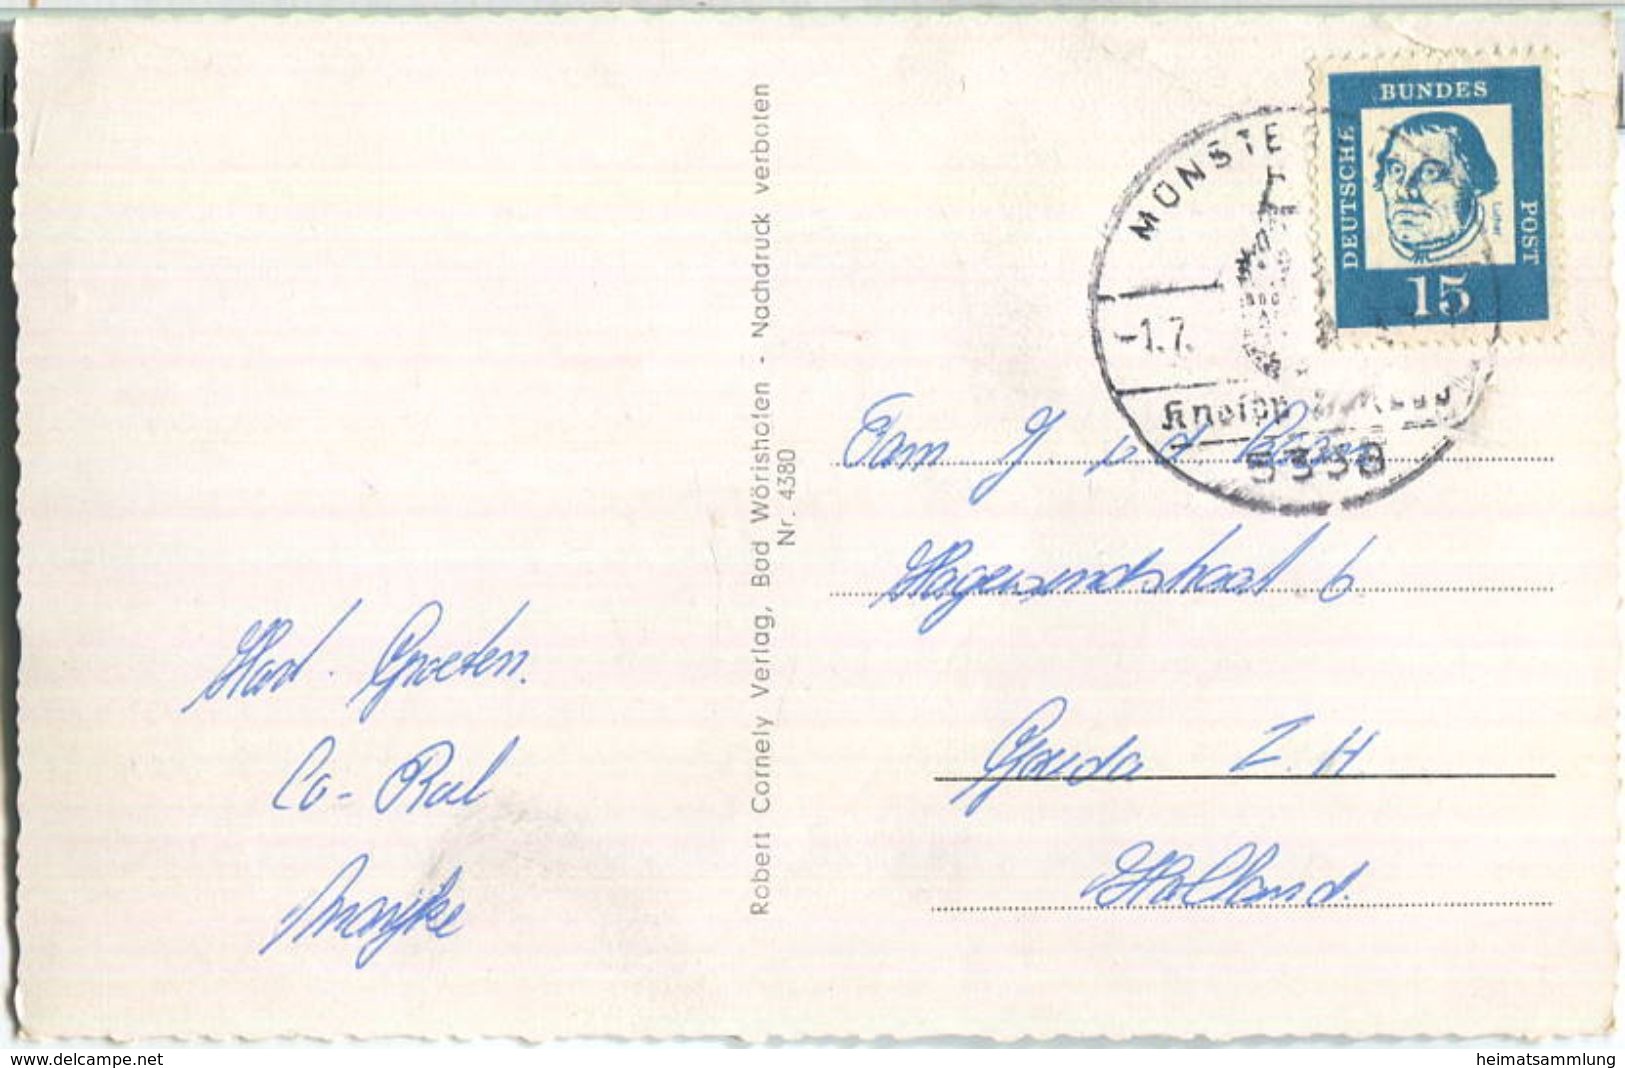 Hart. Groeten.
Co - Roel
Marijke
Robert Cornely Verlag, Bad Wörishofen - Nachdruck verboten
Nr. 4380
DEUTSCHE BUNDES POST
Luther
15
MÜNSTE
-1.7.
Kneipp
5358
Fam
6
Gouda Z. H.
Holland.
www.delcampe.net
heimatsammlung